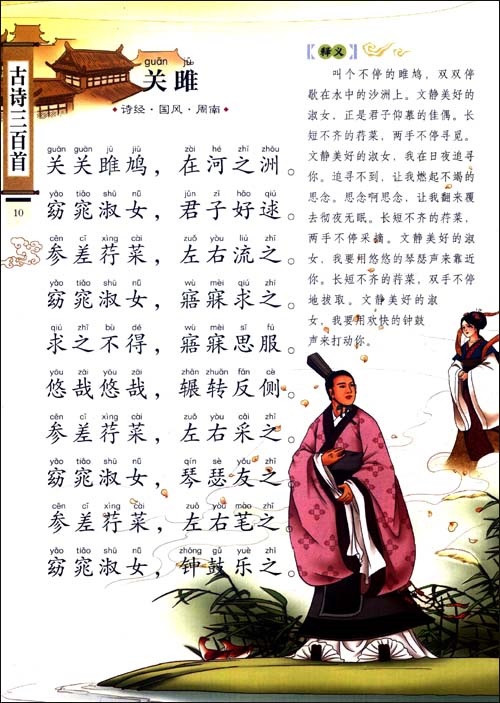 古诗三百首
10
guān jū
关雎
·诗经·国风·周南·
guān guān jū jiū zài hé zhī zhōu
关关雎鸠，在河之洲。
yǎo tiǎo shū nǚ jūn zǐ hǎo qiú
窈窕淑女，君子好逑。
cēn cī xìng cài zuǒ yòu liú zhī
参差荇菜，左右流之。
yǎo tiǎo shū nǚ wù mèi qiú zhī
窈窕淑女，寤寐求之。
qiú zhī bù dé wù mèi sī fú
求之不得，寤寐思服。
yōu zāi yōu zāi zhǎn zhuǎn fǎn cè
悠哉悠哉，辗转反侧。
cēn cī xìng cài zuǒ yòu cǎi zhī
参差荇菜，左右采之。
yǎo tiǎo shū nǚ qín sè yǒu zhī
窈窕淑女，琴瑟友之。
cēn cī xìng cài zuǒ yòu mào zhī
参差荇菜，左右芼之。
yǎo tiǎo shū nǚ zhōng gǔ yuè zhī
窈窕淑女，钟鼓乐之。
【释义】
叫个不停的雎鸠，双双停
歇在水中的沙洲上。文静美好的
淑女，正是君子仰慕的佳偶。长
短不齐的荇菜，两手不停寻觅。
文静美好的淑女，我在日夜追寻
你。追寻不到，让我燃起不竭的
思念。思念啊思念，让我翻来覆
去彻夜无眠。长短不齐的荇菜，
两手不停采摘。文静美好的淑
女，我要用悠悠的琴瑟声来靠近
你。长短不齐的荇菜，双手不停
地拔取。文静美好的淑
女，我要用欢快的钟鼓
声来打动你。